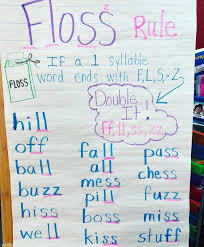 Floss Rule
IF a 1 syllable
word ends with F, L, S, + Z,
FLOSS
Double
It!
ff, ll, ss, zz
hill
off
ball
buzz
hiss
well
fall
all
mess
pill
boss
kiss
pass
chess
fuzz
miss
stuff